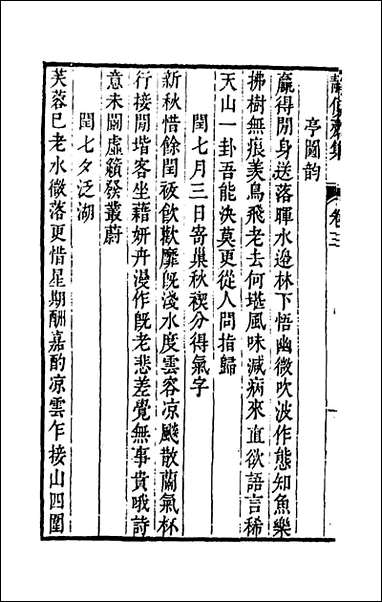 亭圖韵
贏得閒身送落暉水邊林下悟幽微吹波作態知魚樂
拂樹無痕羨鳥飛老去何堪風味減病來直欲語言稀
天山一卦吾能決莫更從人問指歸
閏七月三日寄巢秋禊分得氣字
新秋惜餘閏祓飲歡靡旣淺水度雲容凉颸散蘭氣杯
行接閒堦客坐藉妍卉漫作旣老悲差覺無事貴哦詩
意未闌虛籟發叢蔚
閏七夕泛湖
芙蓉巳老水微落更惜星期酬嘉酌凉雲乍接山四圍